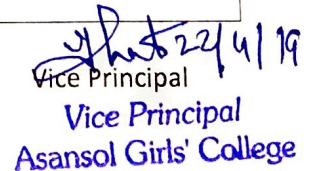 22/4/19
Vice Principal
Vice Principal
Asansol Girls' College